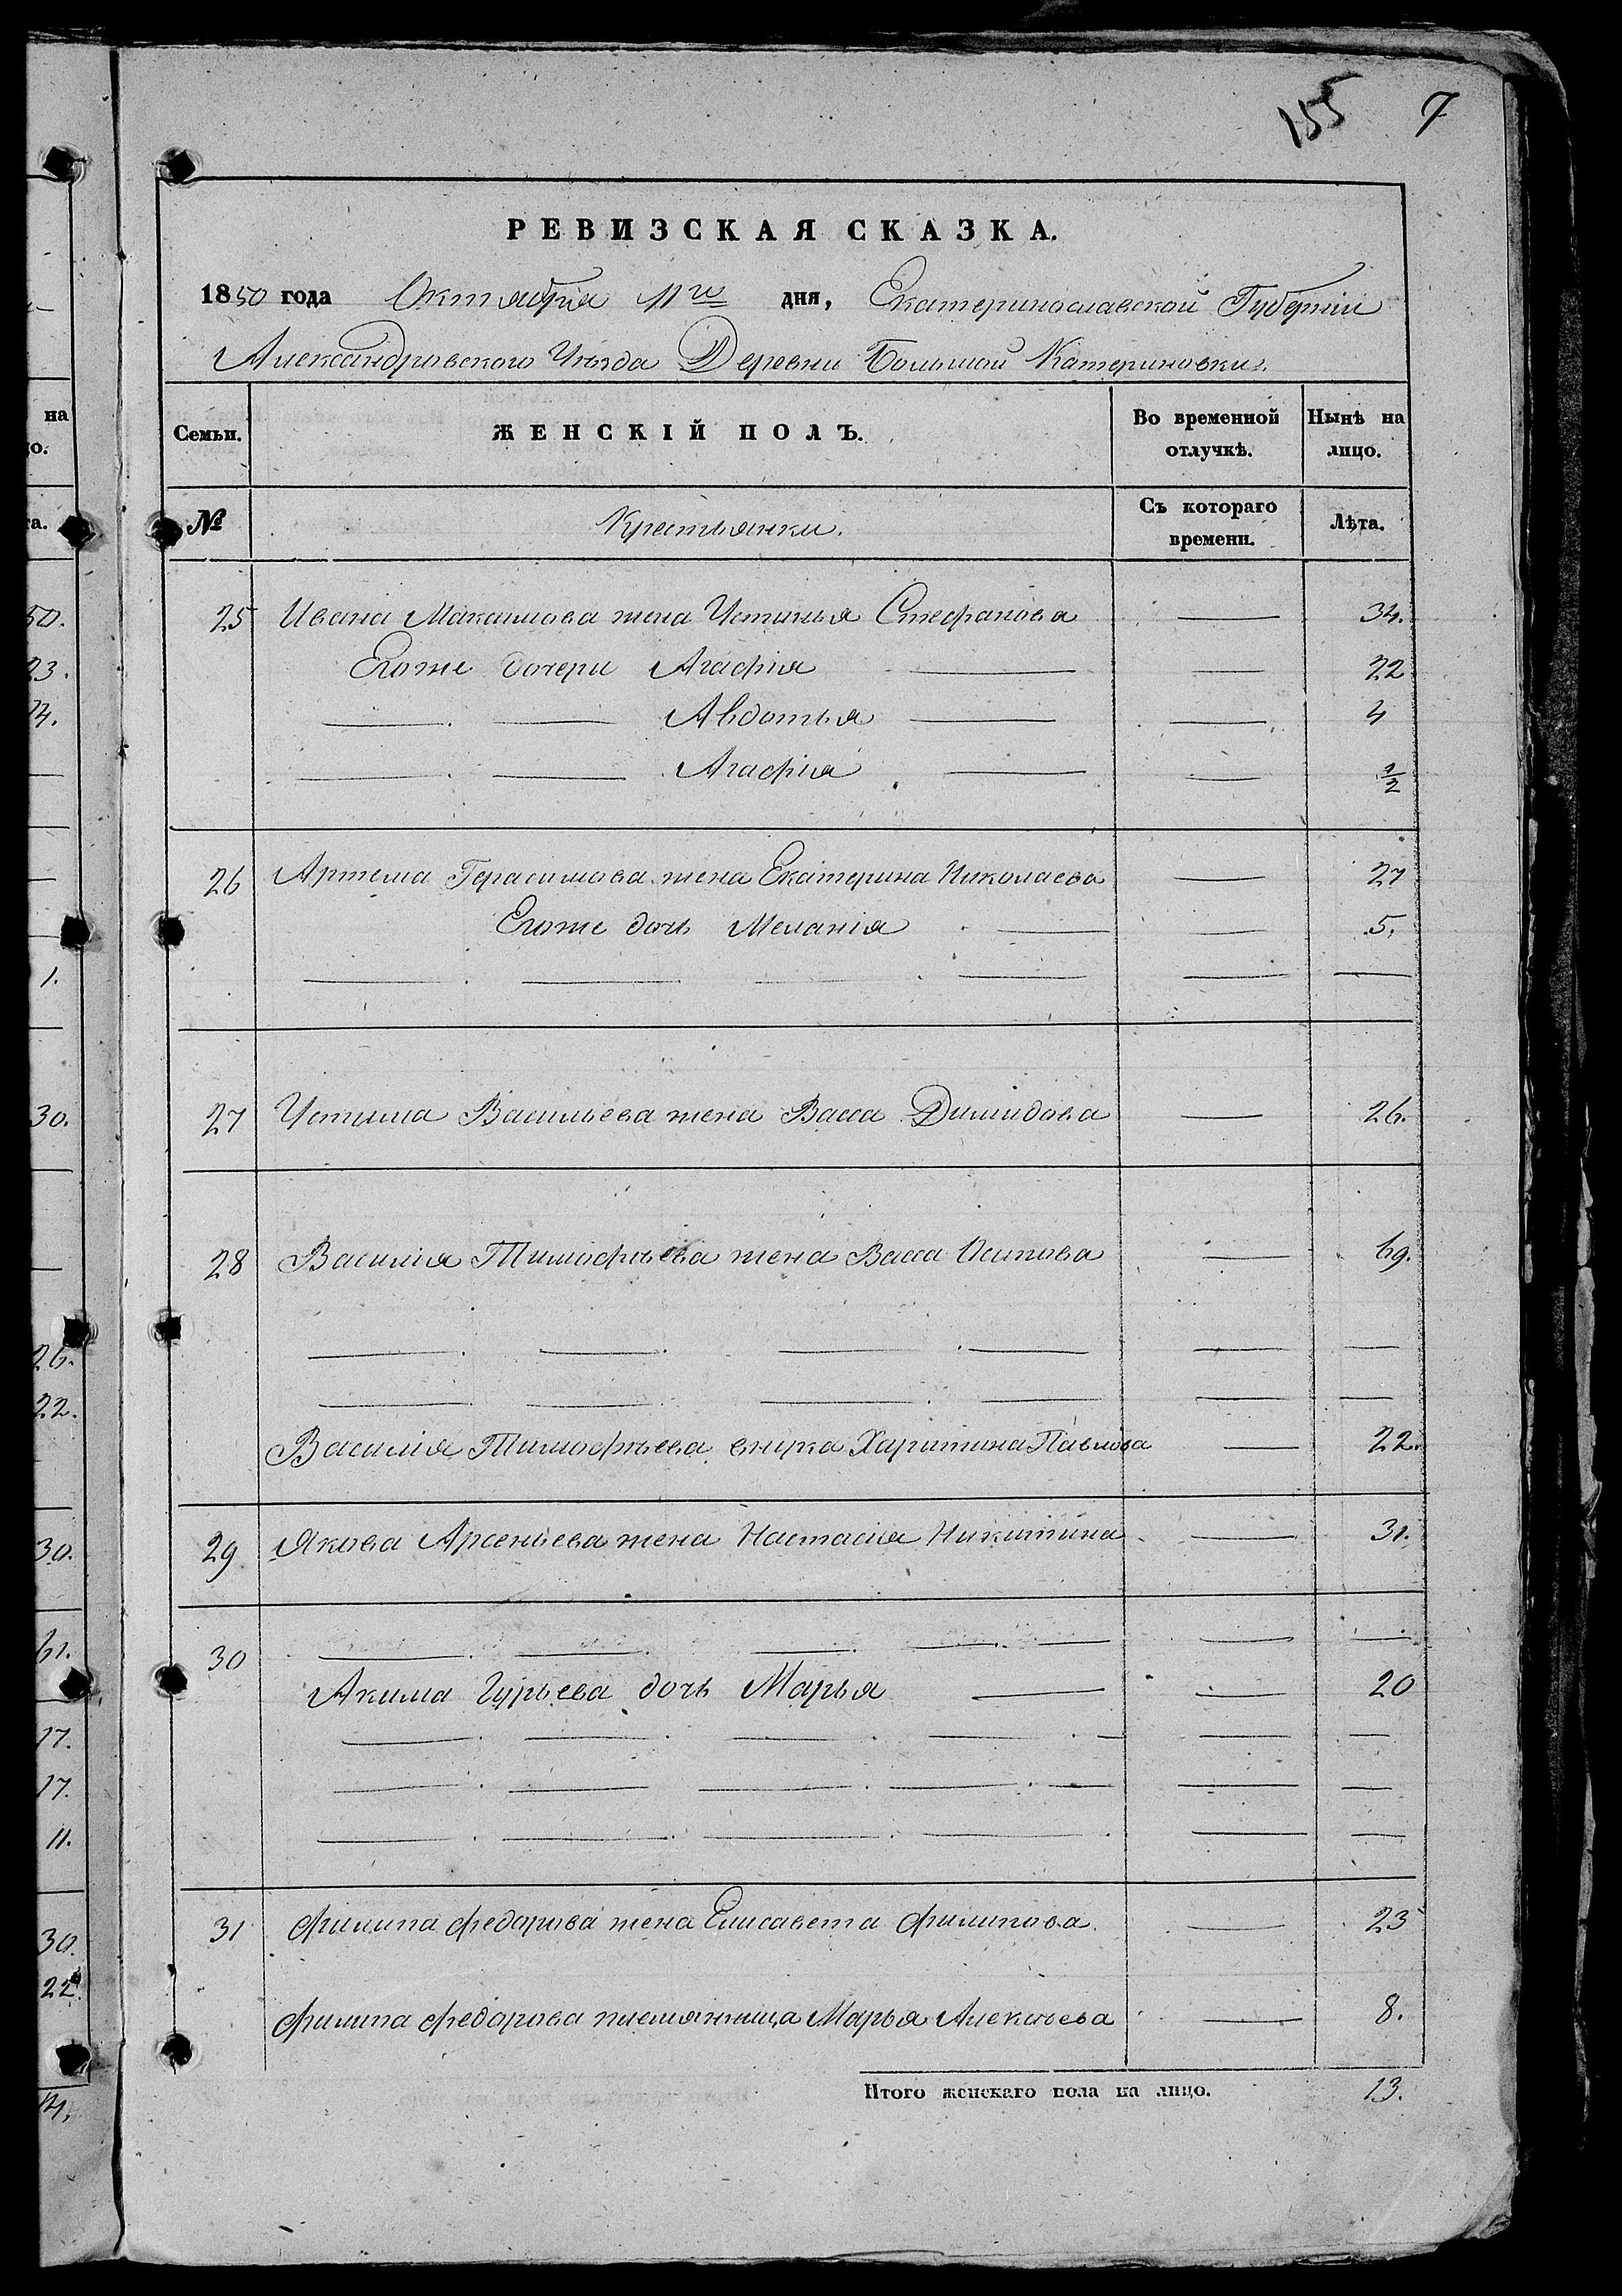 155 7
РЕВИЗСКАЯ СКАЗКА.
1850 года Октября 11го дня, Екатеринославской Губерніи
Александровского Уѣзда Деревни Большой Катериновки.
Семьи. ЖЕНСКІЙ ПОЛЪ. Во временной отлучкѣ. Нынѣ на лицо.
№ Крестьянки. Съ котораго времени. Лѣта.
25 Ивана Максимова жена Устинья Стефанова — 34.
Егоже дочери Агафія — — 22
— — Авдотья — — 4
— — Агафія — — 1/2
26 Артема Герасимова жена Екатерина Николаева — 27
Егоже дочь Меланія — — 5.
— — — — — —
27 Устима Васильева жена Васса Димидова — 26.
28 Василія Тимофѣева жена Васса Осипова — 69.
— — — — — —
— — — — — —
Василія Тимофѣева внука Харитина Павлова — 22.
29 Якова Арсеньева жена Настасія Никитина — 31.
30 — — — — — — —
Акима Гурьева дочь Марья — — 20
— — — — — — —
— — — — — — —
— — — — — —
31 Филипа Федорова жена Елисавета Филипова — 23
Филипа Федорова племянница Марья Алексѣева — 8.
Итого женскаго пола на лицо. 13.
на
о.
та.
50.
23.
1.
30.
26.
22.
30.
61.
17.
17.
11.
30.
22